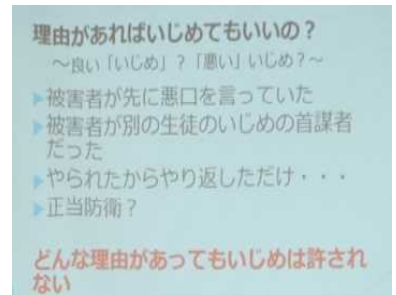 理由があればいじめてもいいの？
～良い「いじめ」？「悪い」いじめ？～
▶被害者が先に悪口を言っていた
▶被害者が別の生徒のいじめの首謀者
だった
▶やられたからやり返しただけ・・・
▶正当防衛？
どんな理由があってもいじめは許され
ない